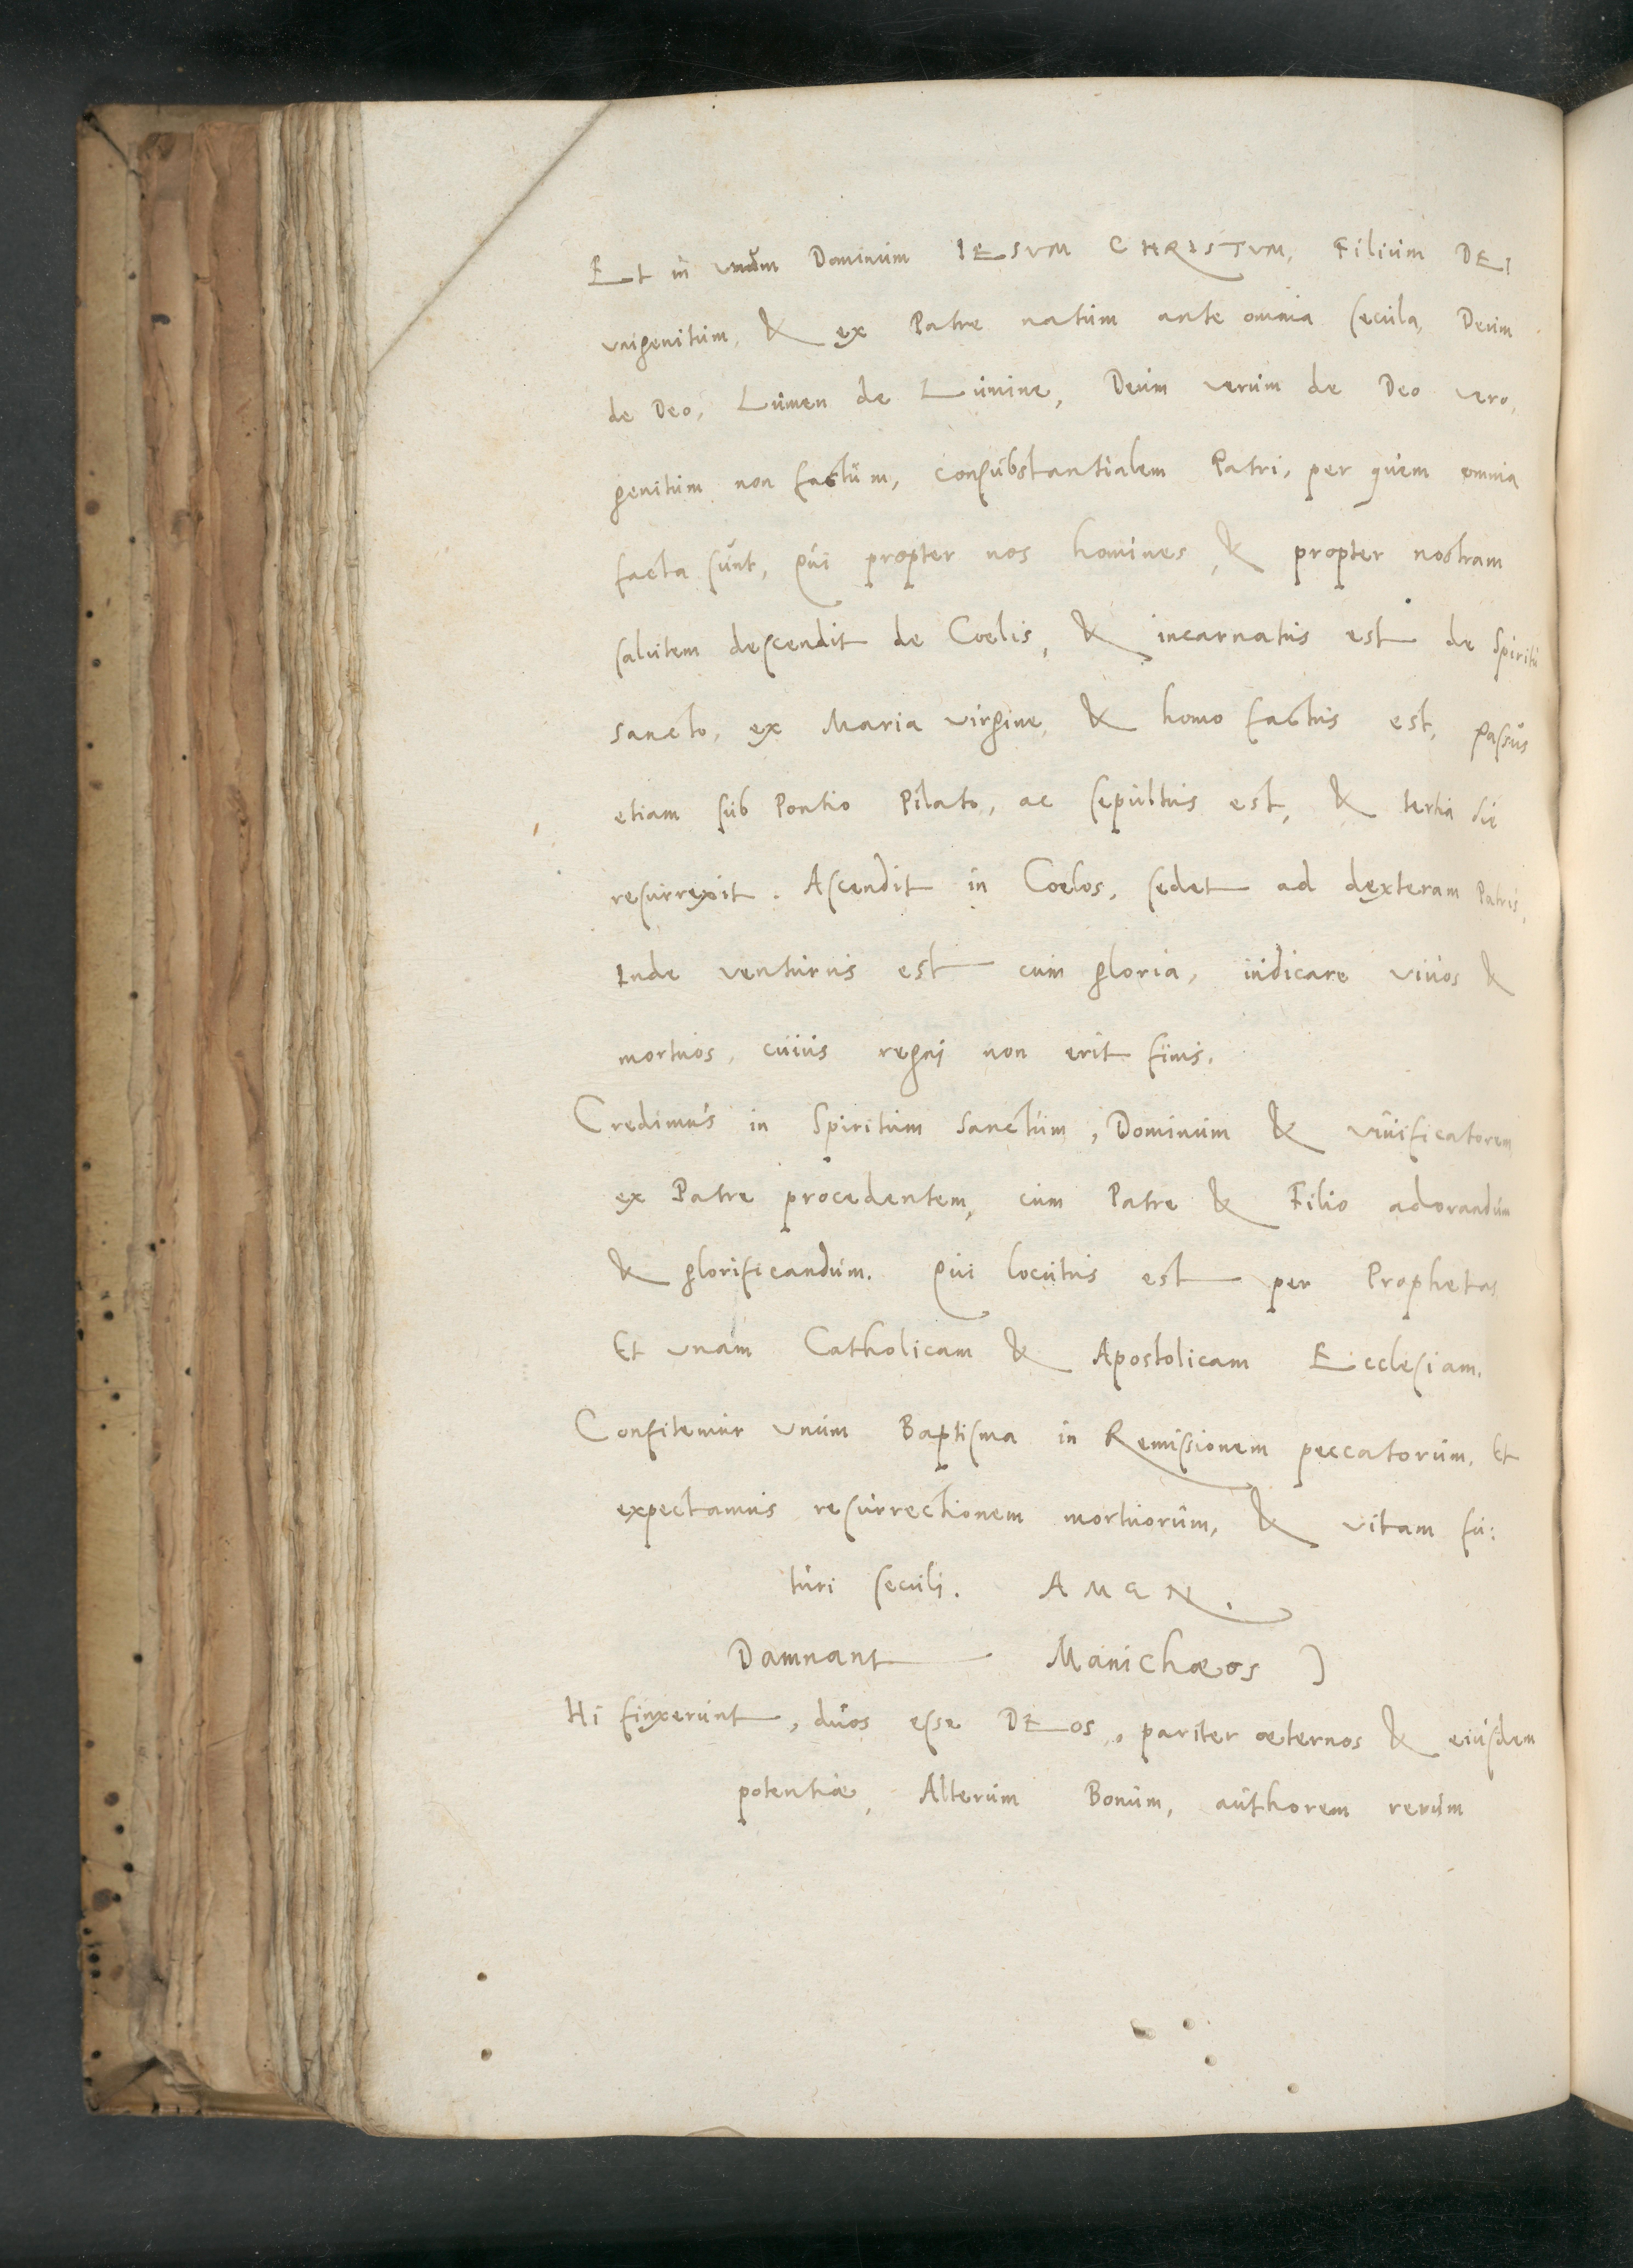 Et in unum Dominum IESVM CHRISTVM, Filium DEI
vnigenitum, & ex Patre natum ante omnia secula, Deum
de Deo, Lumen de Lumine, Deum verum de Deo vero,
genitum non factum, consubstantialem Patri, per quem omnia
facta sunt, Qui propter nos homines, & propter nostram
salutem descendit de Coelis, & incarnatus est de Spiritu
sancto, ex Maria virgine, & homo factus est, Passus
etiam sub Pontio Pilato, ac sepultus est, & tertia die
resurrexit. Ascendit in Coelos, sedet ad dexteram Patris,
Inde venturus est cum gloria, iudicare vivos &
mortuos, cuius regni non erit finis.
Credimus in Spiritum sanctum, Dominum & vivificatorem
ex Patre procedentem, cum Patre & Filio adorandum
& glorificandum. Qui locutus est per Prophetas
Et vnam Catholicam & Apostolicam Ecclesiam.
Confitemur vnum Baptisma in Remissionem peccatorum, Et
expectamus resurrectionem mortuorum, & vitam fu:
turi seculi. AMEN.
Damnant Manichæos ]
Hi finxerunt, duos esse DEos, pariter æternos & eiusdem
potentiæ, Alterum Bonum, authorem rerum